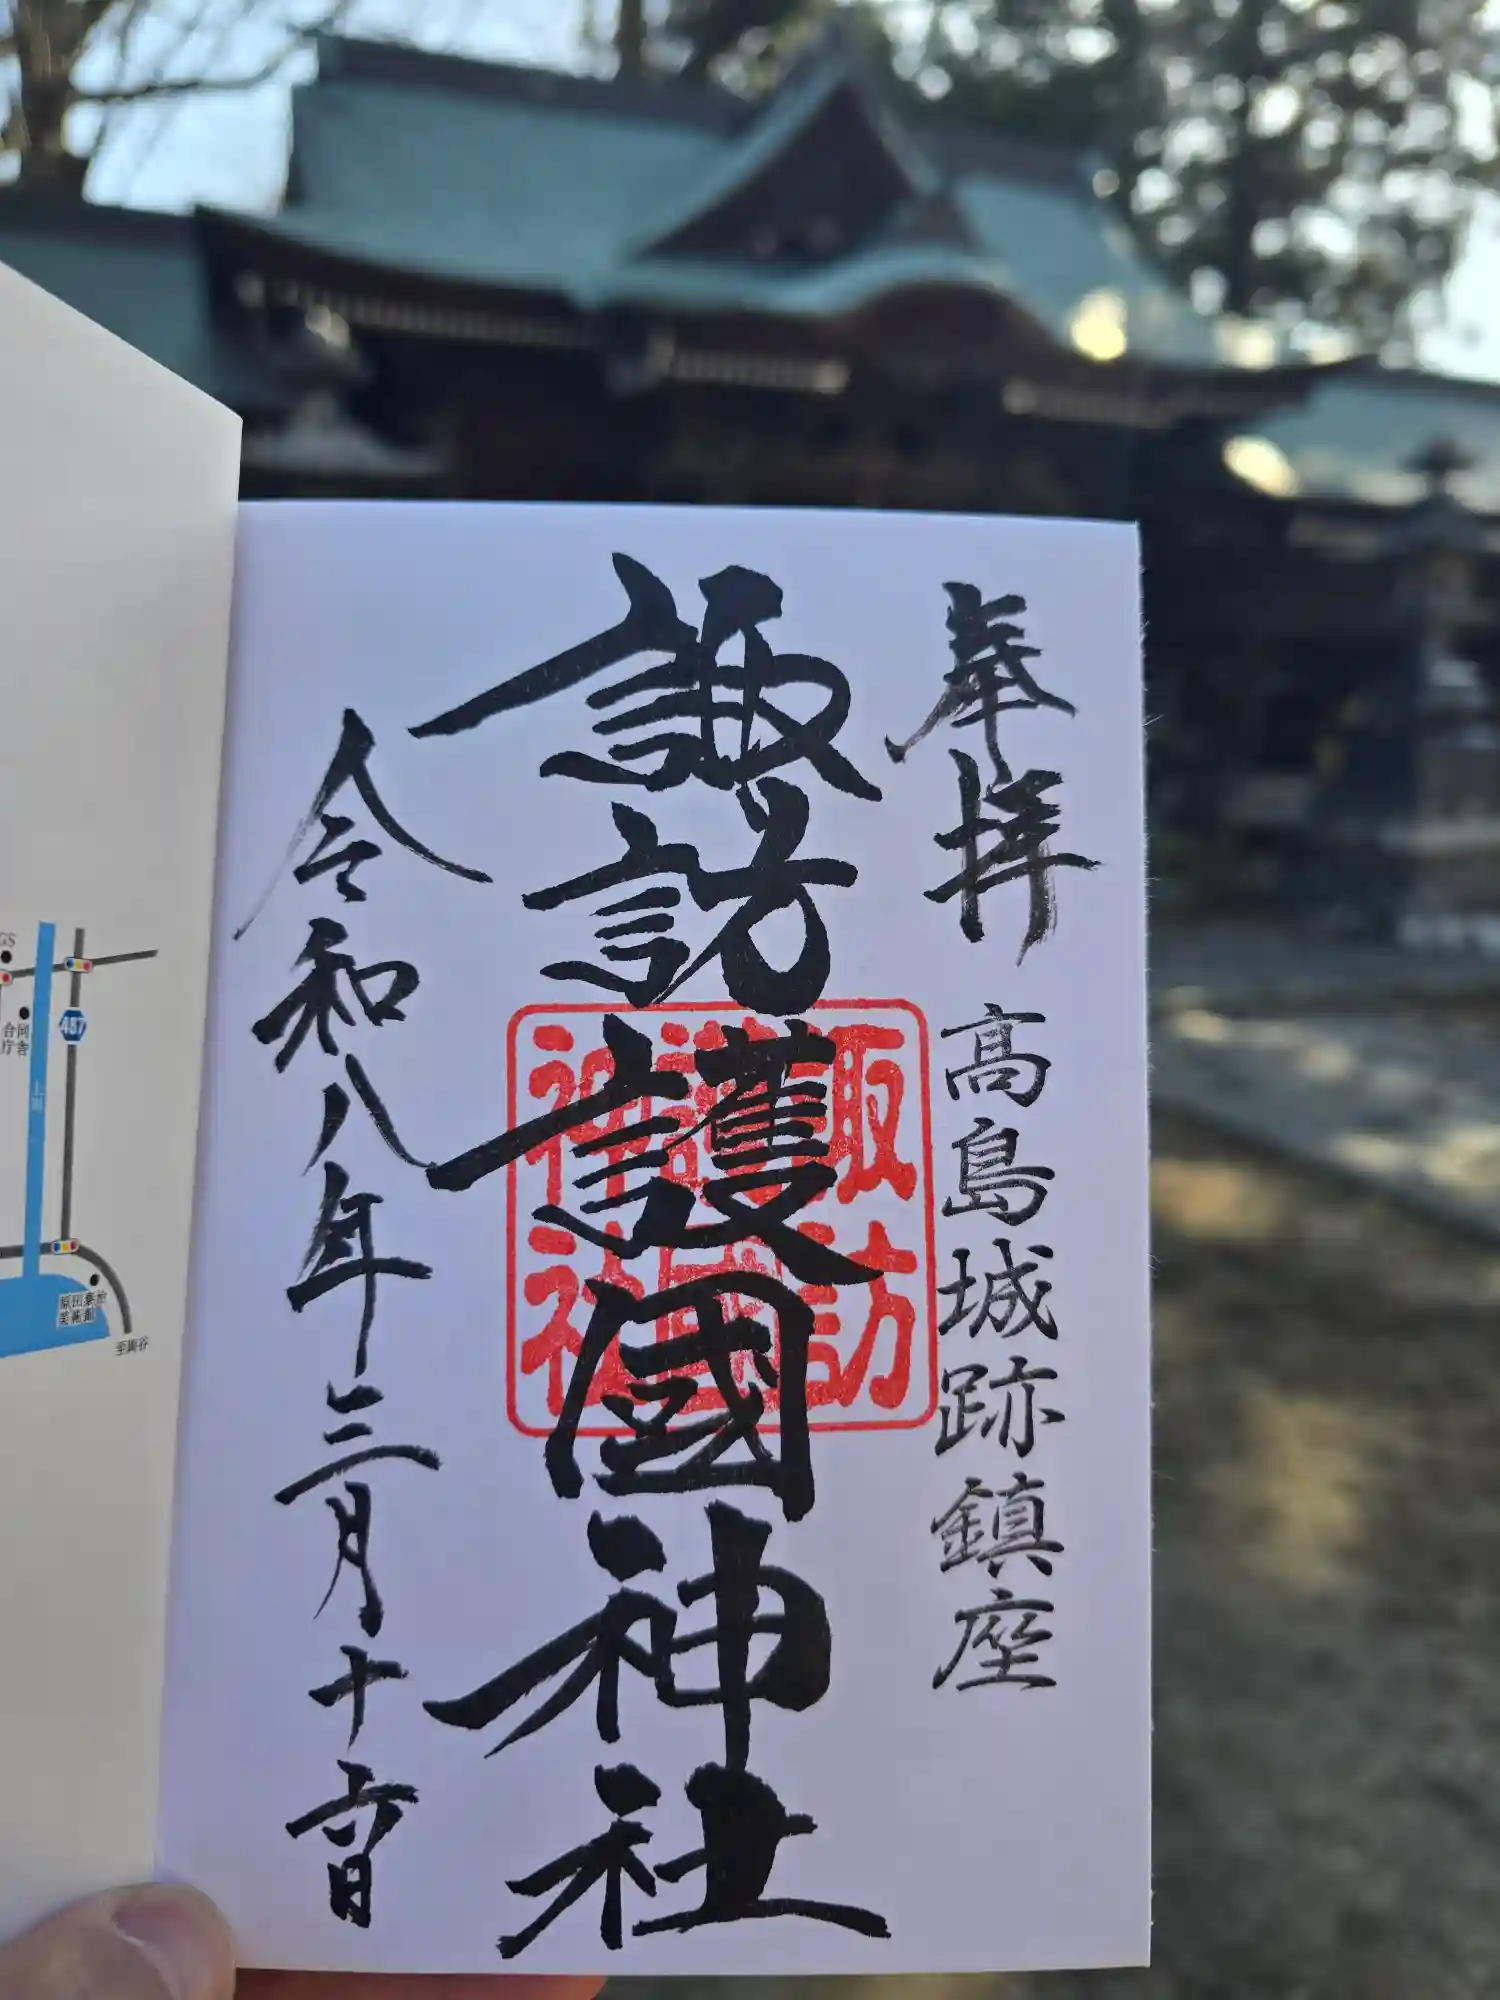 奉拝
高島城跡鎮座
諏訪護國神社
諏訪
護國
神社
令和八年三月十六日
487
GS
合同
庁舎
上川
原田泰治
美術館
至岡谷